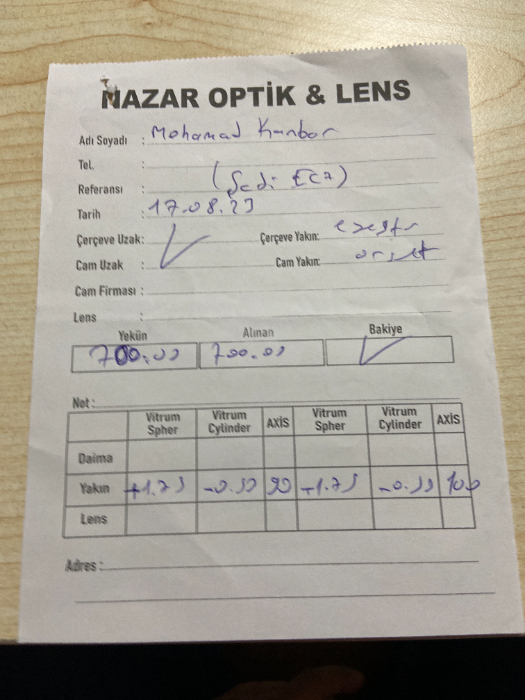 NAZAR OPTİK & LENS
Adı Soyadı : Mohamad Kanbar
Tel. :
Referansı :
Tarih : 17.08.23
Çerçeve Uzak: Çerçeve Yakın:
Cam Uzak : Cam Yakın:
Cam Firması :
Lens :
Yekün Alınan Bakiye
700.00 700.00
Not :
Vitrum Spher Vitrum Cylinder AXİS Vitrum Spher Vitrum Cylinder AXİS
Daima
Yakın +1.75 -0.50 90 +1.75 -0.50 100
Lens
Adres :